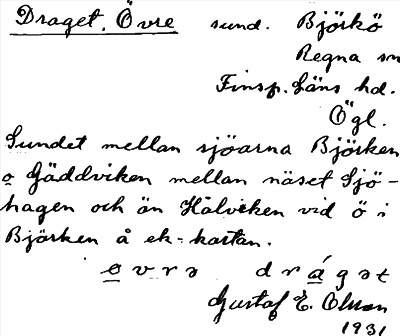 Draget, Övre sund. Björkö
Regna sn
Finsp. Läns hd.
Ögl.
Sundet mellan sjöarna Björken
o Gäddviken mellan näset Sjö-
hagen och ön Hålviken vid ö i
Björken å ek=kartan.
øvrə drágət
Gustaf E. Olsson
1931